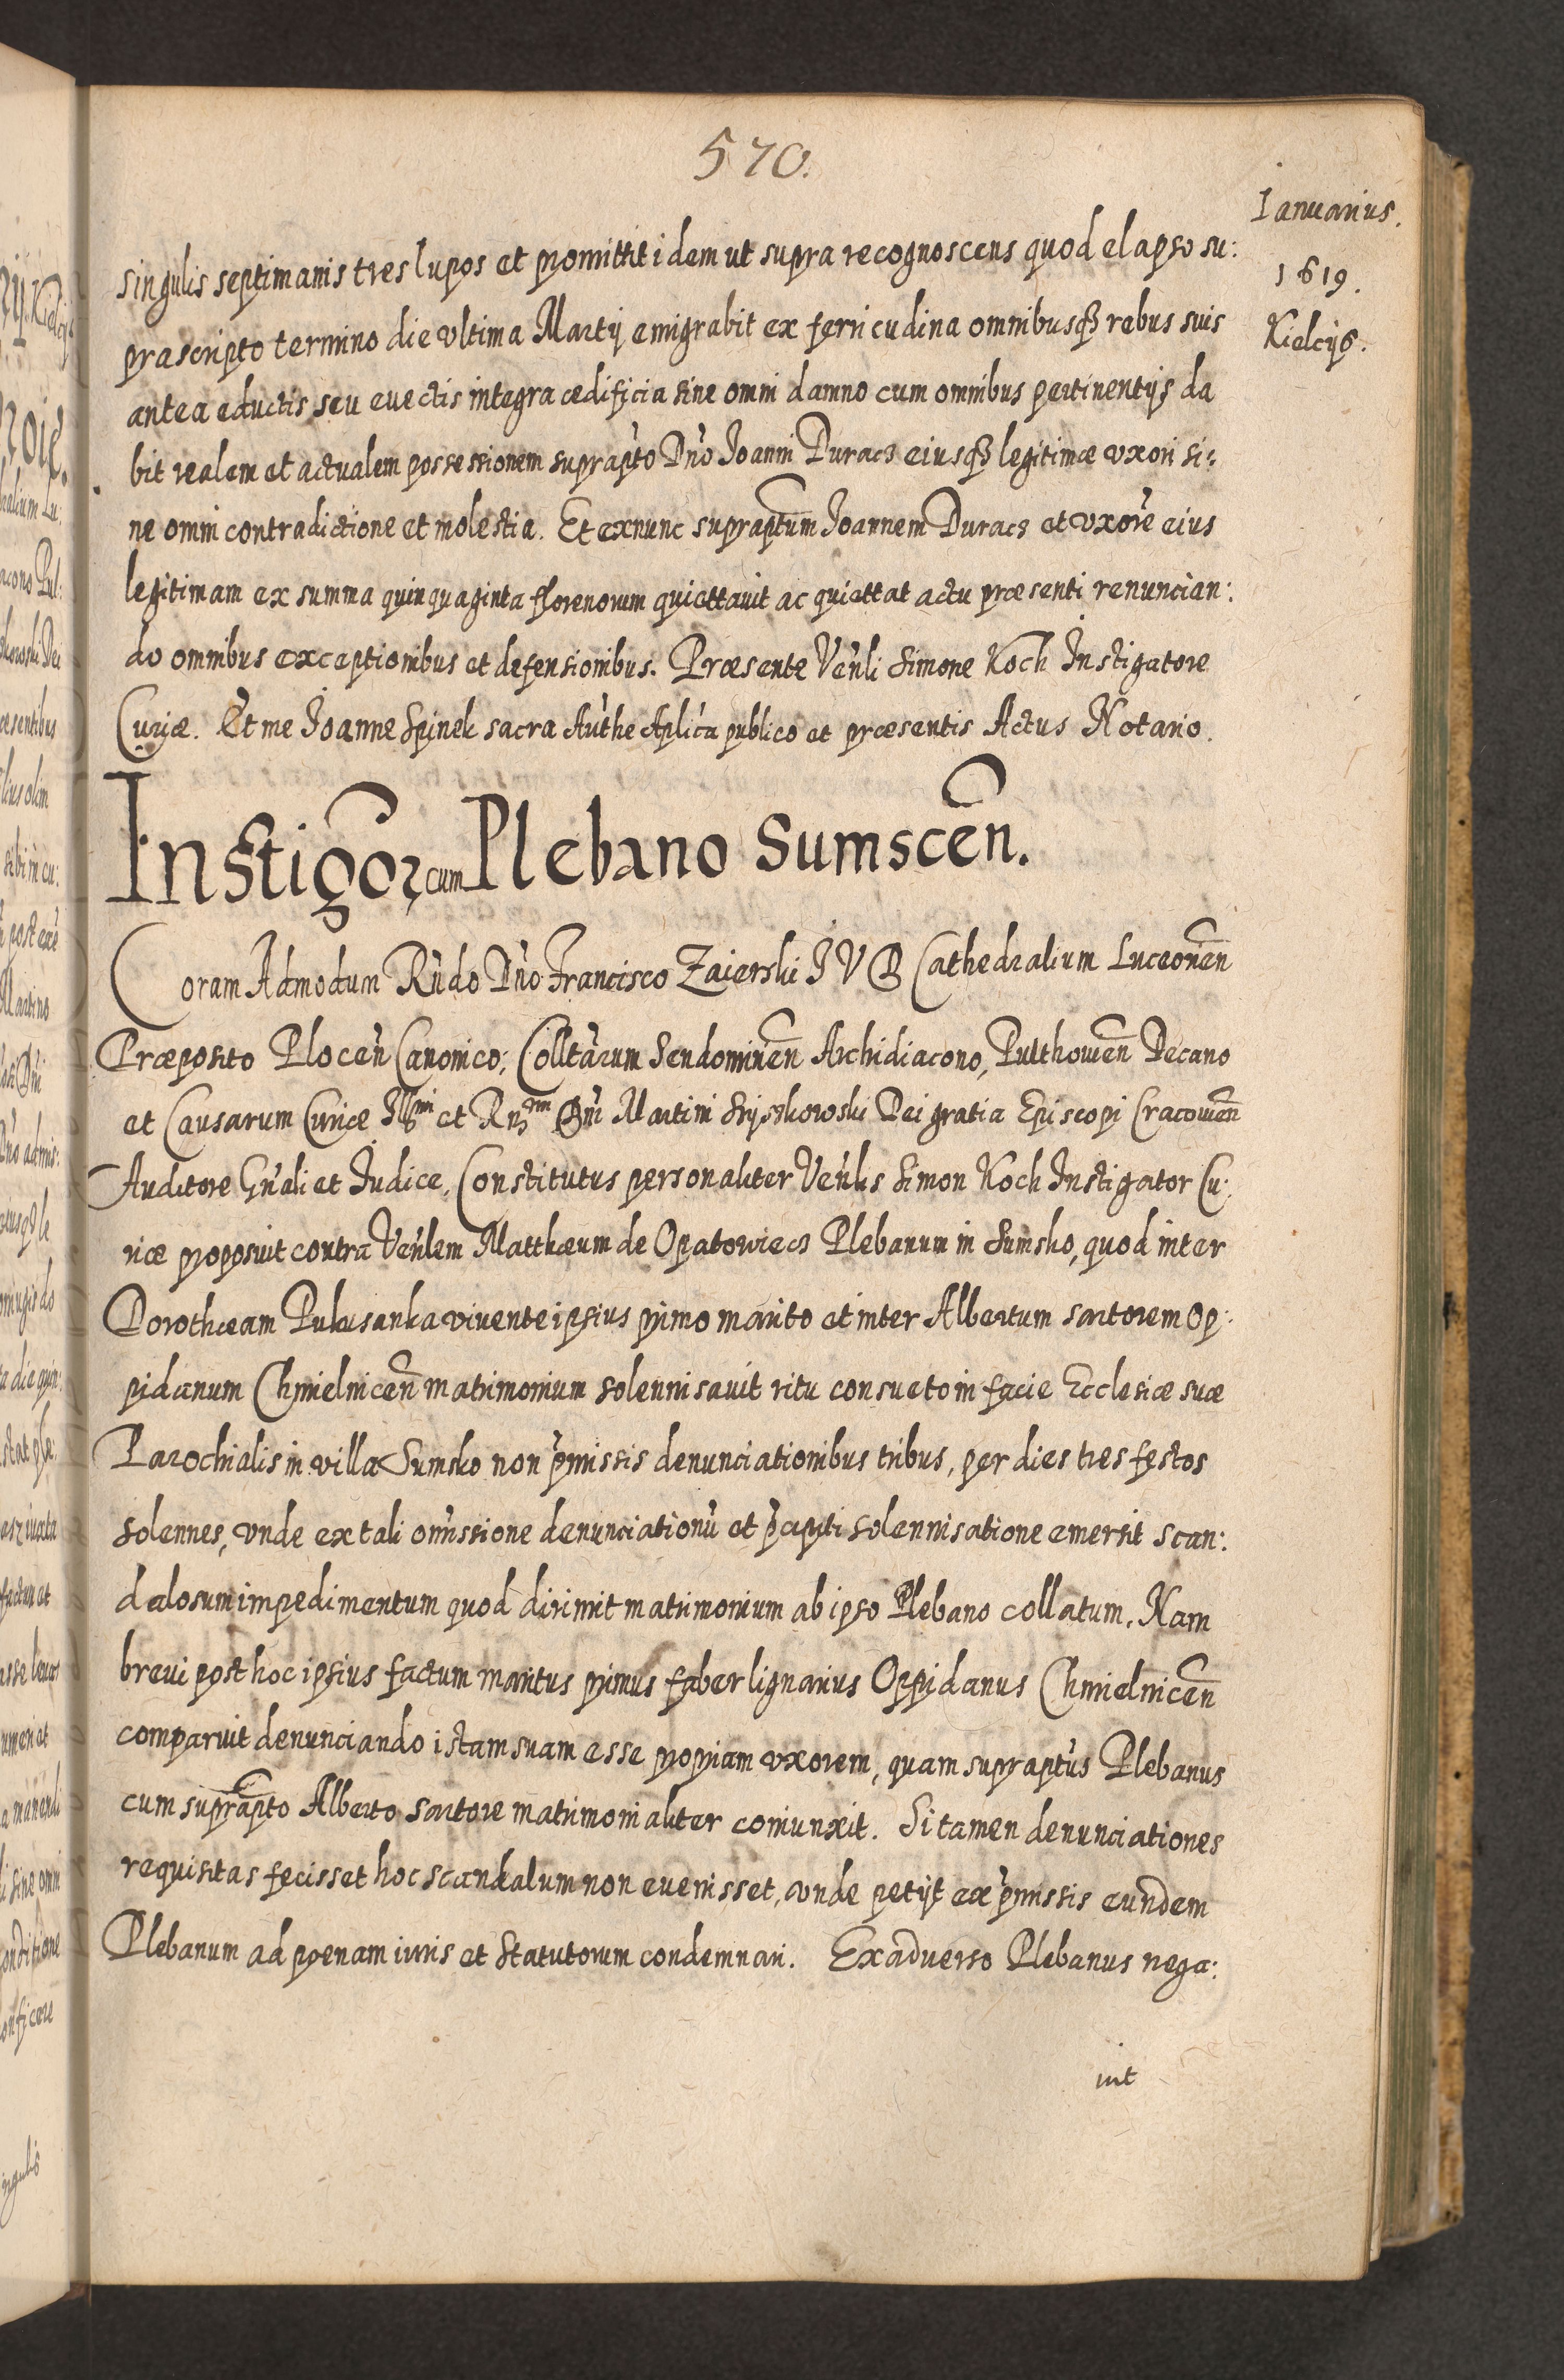 570.
Ianuarius.
1619.
Kielcijs.
singulis septimanis tres lupos et promittit idem ut supra recognoscens quod elapso su:
prascripto termino die vltima Martij emigrabit ex ferricudina omnibusqꝫ rebus suis
antea eductis seu euectis integra ædificia sine omni damno cum omnibus pertinentijs da
bit realem et actualem possessionem suprapto Dno Joanni Duracz eiusqꝫ legitimæ vxori si:
ne omni contradictione et molestia. Et exnunc supraptum Joannem Duracz et vxore eius
legitimam ex summa quinquaginta florenorum quiettauit ac quiettat actu præsenti renuncian:
do omnibus exceptionibus et defensionibus. Præsente Venli Simone Koch Instigatore
Curiæ. Et me Joanne Spinek sacra Authe Aplica publico et præsentis Actus Notario.
Instigor cum Plebano Sumscen.
Coram Admodum Rndo Dno Francisco Zaierski J V D Cathedralium Luceonen
Præposito Plocen Canonico, Colltarum Sendomiren Archidiacono, Pulthowen Decano
et Causarum Curiæ Illmi et Rndmi Dni Martini Szyszkowski Dei gratia Episcopi Cracouien
Auditore Gnali et Judice, Constitutus personaliter Venlis Simon Koch Instigator Cu:
riæ proposuit contra Venlem Matthæum de Opatowiecz Plebanum in Sumsko, quod inter
Dorothæam Pukusanka viuente ipsius primo marito et inter Albertum sartorem Op:
pidanum Chmielnicen matrimonium solennisauit ritu consueto in facie Ecclesiæ suæ
Parochialis in villa Sumsko non pmissis denunciationibus tribus, per dies tres festos
solennes, vnde ex tali omissione denunciationu et pcapti solennisatione emersit scan:
dalosum impedimentum quod dirimit matrimonium ab ipso Plebano collatum. Nam
breui post hoc ipsius factum maritus primus faber lignarius Oppidanus Chmielnicen
comparuit denunciando istam suam esse propriam vxorem, quam supraptus Plebanus
cum suprapto Alberto sartore matrimonialiter coniunxit. Si tamen denunciationes
requisitas fecisset hoc scandalum non euenisset, vnde petijt ex pmissis eundem
Plebanum ad pœnam iuris et Statutorum condemnari. Ex aduerso Plebanus nega:
uit